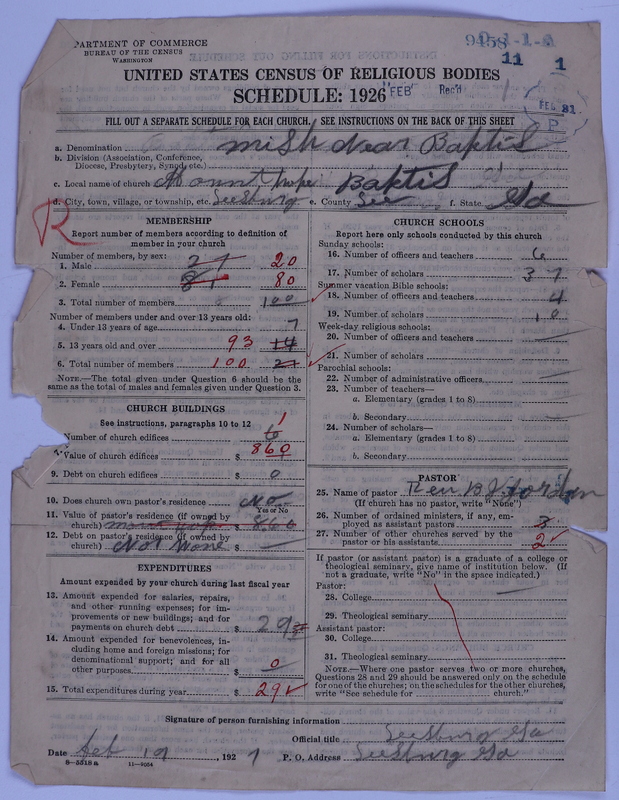 DEPARTMENT OF COMMERCE
BUREAU OF THE CENSUS
WASHINGTON
9458
11 1
UNITED STATES CENSUS OF RELIGIOUS BODIES
SCHEDULE: 1926
FEB Rec'd
FILL OUT A SEPARATE SCHEDULE FOR EACH CHURCH. SEE INSTRUCTIONS ON THE BACK OF THIS SHEET
FEB 21
P
a. Denomination Baptis
b. Division (Association, Conference,
Diocese, Presbytery, Synod, etc.)
c. Local name of church Mounnt hope Baptis
d. City, town, village, or township, etc. Leesburg e. County Lee f. State Ga
R
MEMBERSHIP
Report number of members according to definition of
member in your church
Number of members, by sex:
1. Male 20
2. Female 80
3. Total number of members 100
Number of members under and over 13 years old:
4. Under 13 years of age 7
5. 13 years old and over 93 14
6. Total number of members 100 21
NOTE.—The total given under Question 6 should be
the same as the total of males and females given under Question 3.
CHURCH BUILDINGS
See instructions, paragraphs 10 to 12
Number of church edifices 1
Value of church edifices $ 860
9. Debt on church edifices $ 0
10. Does church own pastor's residence No
Yes or No
11. Value of pastor's residence (if owned by
church) $ 860
12. Debt on pastor's residence (if owned by
church) Not None $
EXPENDITURES
Amount expended by your church during last fiscal year
13. Amount expended for salaries, repairs,
and other running expenses; for im-
provements or new buildings; and for
payments on church debt $ 29
14. Amount expended for benevolences, in-
cluding home and foreign missions; for
denominational support; and for all
other purposes $ 0
15. Total expenditures during year $ 29
CHURCH SCHOOLS
Report here only schools conducted by this church
Sunday schools:
16. Number of officers and teachers 6
17. Number of scholars 37
Summer vacation Bible schools:
18. Number of officers and teachers 4
19. Number of scholars 10
Week-day religious schools:
20. Number of officers and teachers
21. Number of scholars
Parochial schools:
22. Number of administrative officers
23. Number of teachers—
a. Elementary (grades 1 to 8)
b. Secondary
24. Number of scholars—
a. Elementary (grades 1 to 8)
b. Secondary
PASTOR
25. Name of pastor Rev. B J Jordan
(If church has no pastor, write "None")
26. Number of ordained ministers, if any, em-
ployed as assistant pastors
27. Number of other churches served by the
pastor or his assistants 2
If pastor (or assistant pastor) is a graduate of a college or
theological seminary, give name of institution below. (If
not a graduate, write "No" in the space indicated.)
Pastor:
28. College
29. Theological seminary
Assistant pastor:
30. College
31. Theological seminary
NOTE.—Where one pastor serves two or more churches,
Questions 28 and 29 should be answered only on the schedule
for one of the churches; on the schedules for the other churches,
write "See schedule for church."
Signature of person furnishing information
Official title Leesburg Ga
Date feb 19, 1927 P. O. Address Leesburg Ga
8—5518 a 11—9054